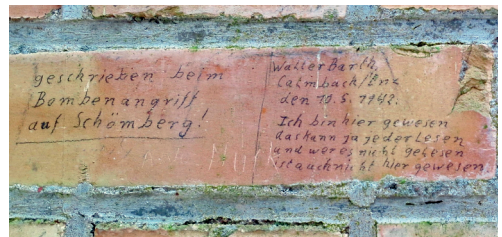 geschrieben beim
Bombenangriff
auf Schömberg!
Walter Barth
Calmbach/Enz
den 10.5.1942.
Ich bin hier gewesen
das kann ja jeder Lesen
und wer es nicht gelesen
ist auch nicht hier gewesen